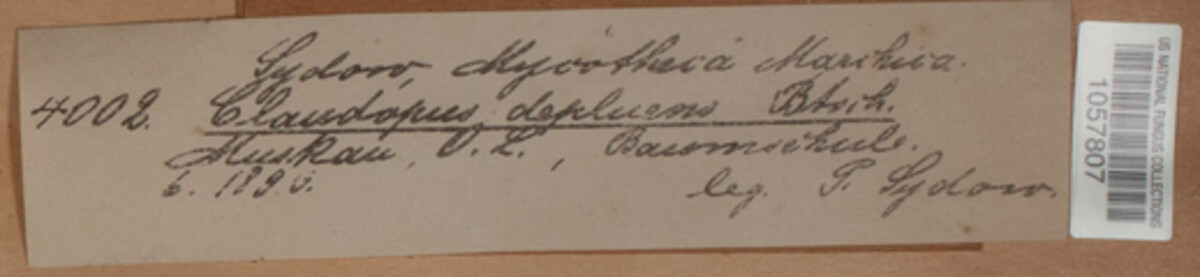 Sydow, Mycotheca Marchica.
4002. Claudopus depluens Btsch.
Muskau, O. L., Baumschule.
6. 189
leg. P. Sydow.
US NATIONAL FUNGUS COLLECTIONS
1057807